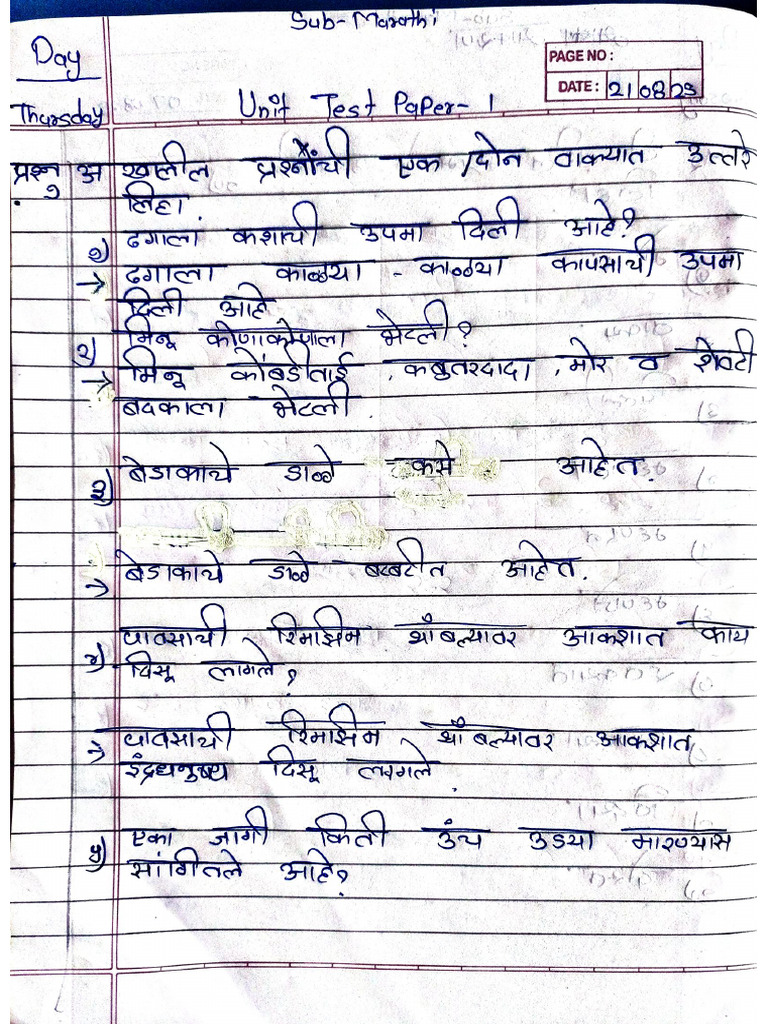 Sub-Marathi
Day
PAGE NO:
DATE: 21 08 25
Thursday
Unit Test Paper-1
प्रश्न १ अ खालील प्रश्नांची एक /दोन वाक्यात उत्तरे
लिहा.
१) ढगाला कशाची उपमा दिली आहे?
→ ढगाला काळ्या - काळ्या कापसाची उपमा
दिली आहे
२) मिनू कोणाकोणाला भेटली?
→ मिनू कोंबडीताई , कबुतरदादा , मोर व शेवटी
बदकाला भेटली .
३) बेडाकाचे डाळे कसे आहेत.
→ बेडाकाचे डाळे बटबटीत आहेत.
४) पावसाची रिमझिम थाँबल्यावर आकशात काय
दिसू लागले?
→ पावसाची रिमझिम थाँबल्यावर आकशात
इंद्रधनुष्य दिसू लागले.
५) एका जागी किती उंच उड्या मारण्यास
सांगितले आहे?